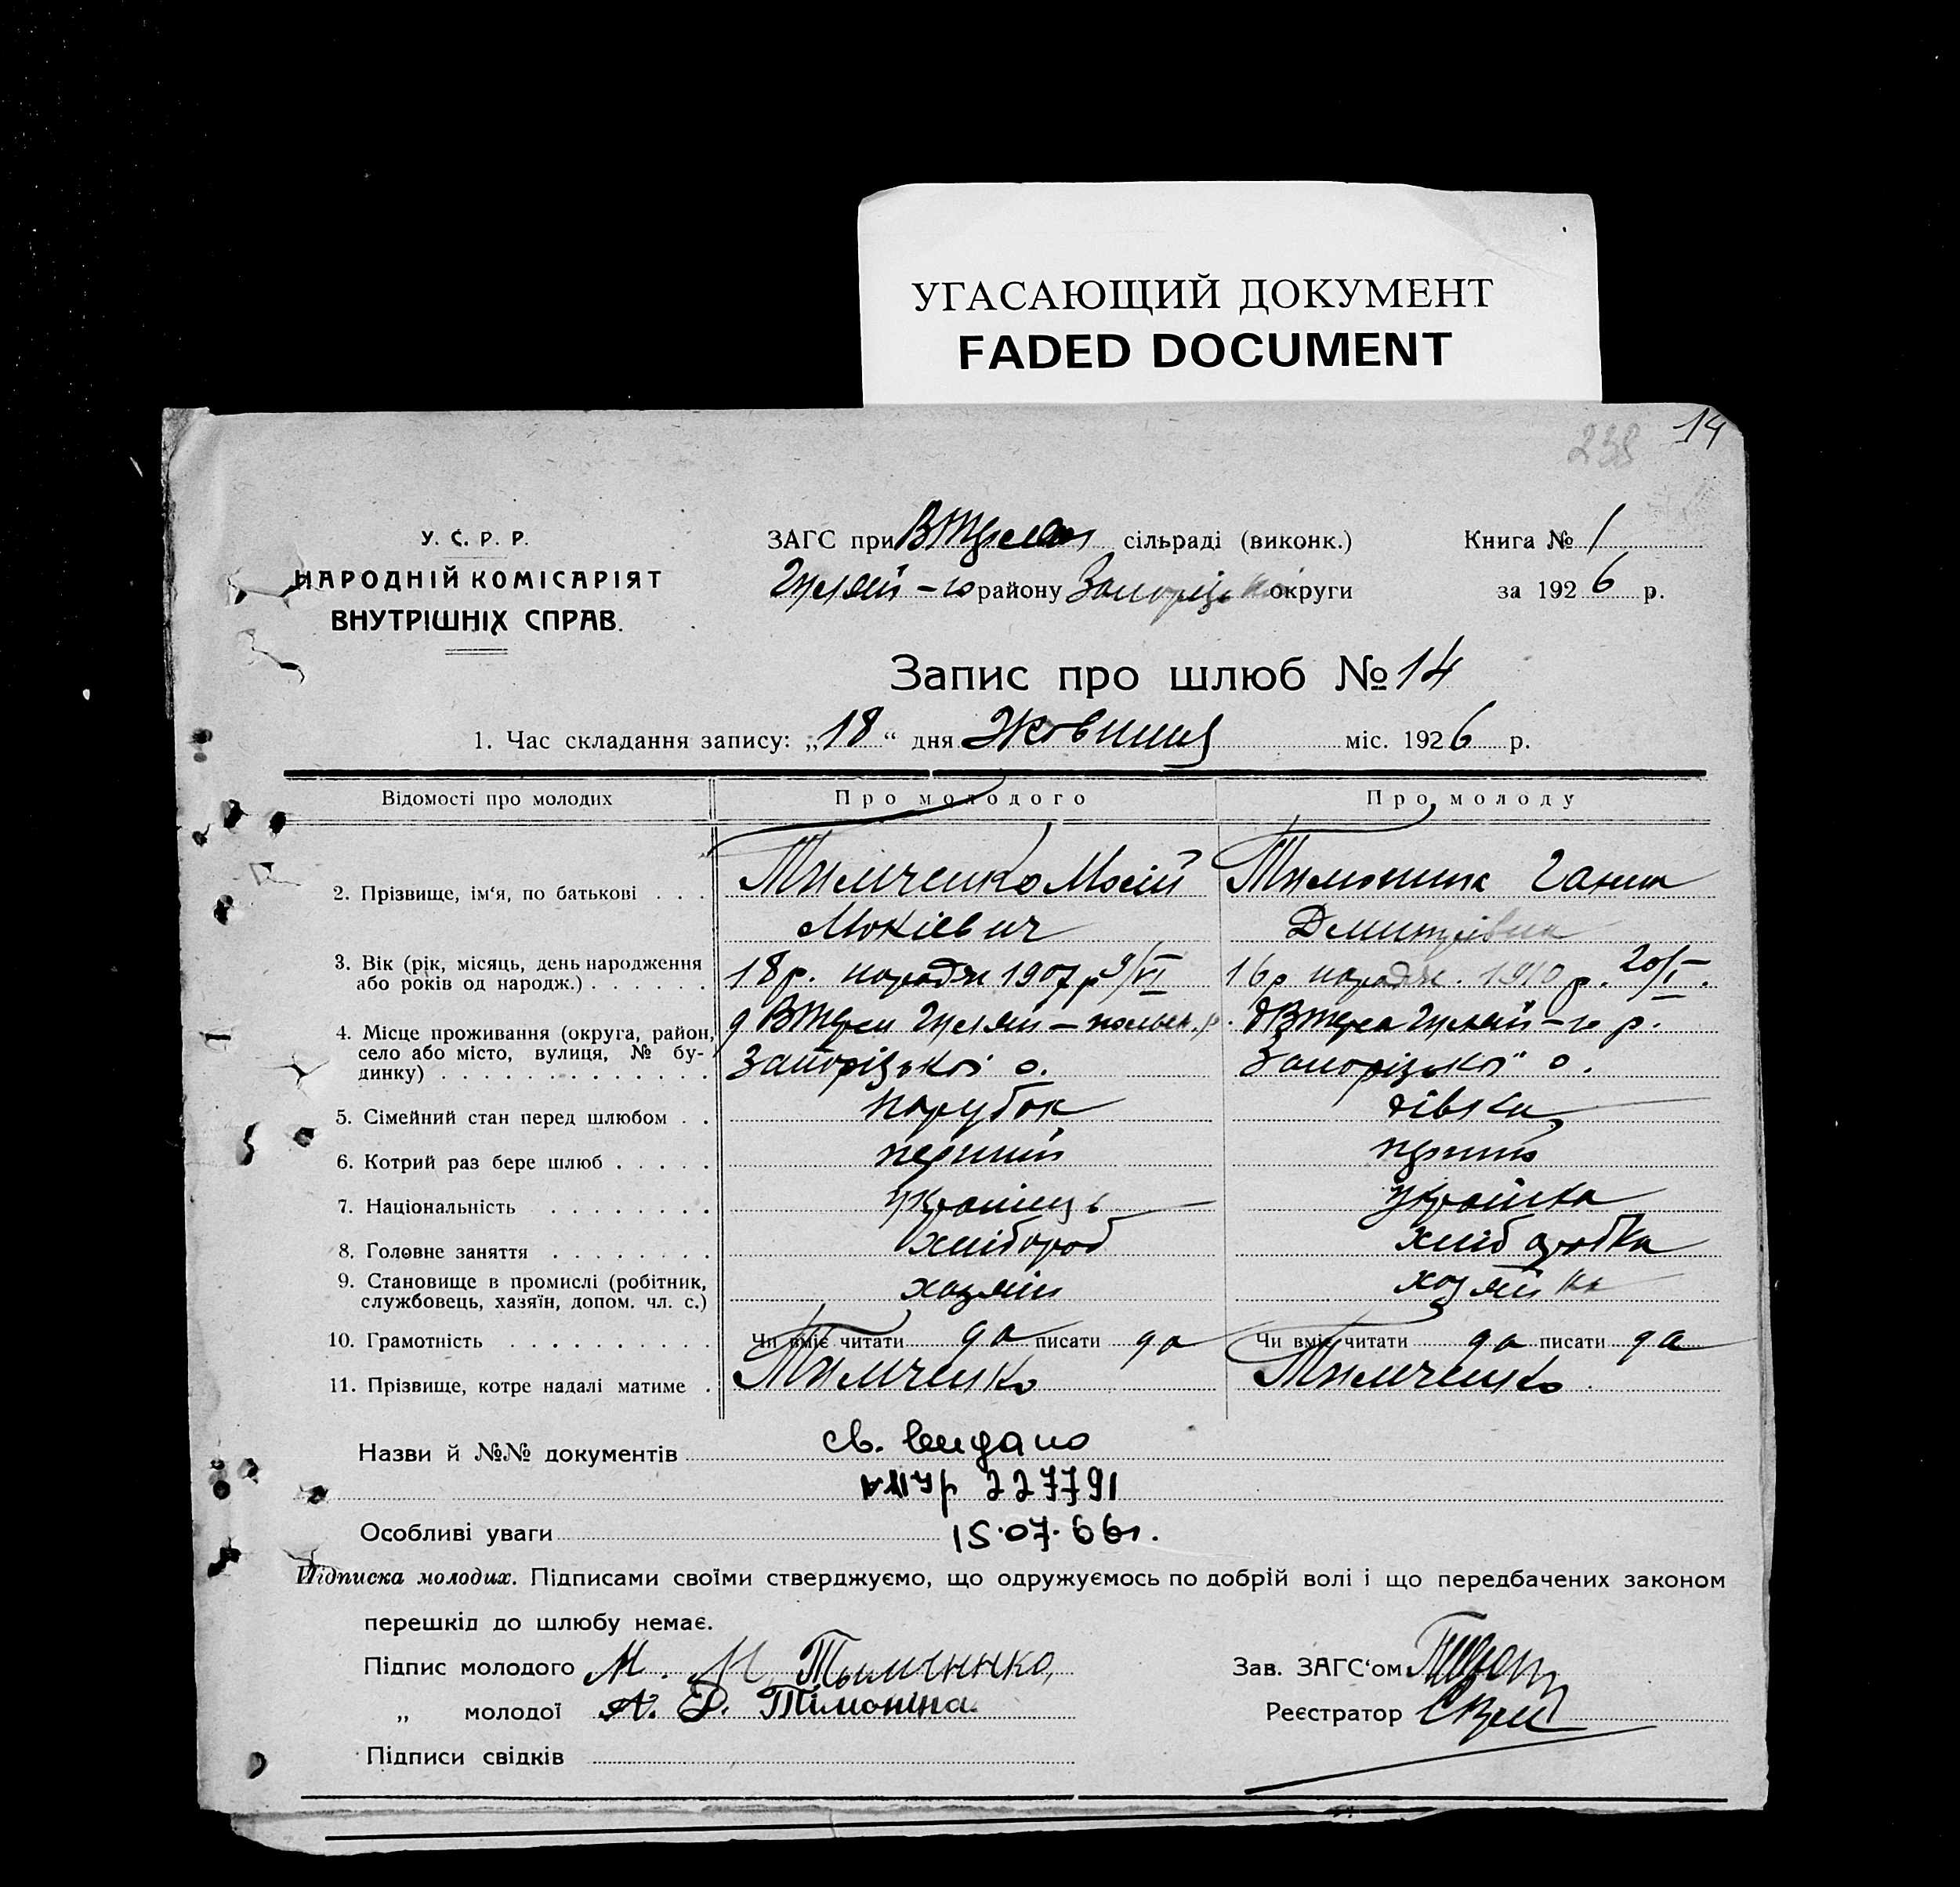 УГАСАЮЩИЙ ДОКУМЕНТ
FADED DOCUMENT
238 14
У. С. Р. Р.
НАРОДНІЙ КОМІСАРІЯТ
ВНУТРІШНІХ СПРАВ.
ЗАГС при сільраді (виконк.) Книга № 1
Гуляй-го району Запорізької округи за 1926 р.
Запис про шлюб № 14
1. Час складання запису: „18“ дня Жовтня міс. 1926 р.
Відомості про молодих Про молодого Про молоду
2. Прізвище, ім‘я, по батькові . . . Тимченко Мосій Тимошина Ганна
Мокієвич Дмитрівна
3. Вік (рік, місяць, день народження
або років од народж.) . . . . . . 18 р. народж 1907 р 9/VI 16 р народж. 1910 р. 20/I.
4. Місце проживання (округа, район,
село або місто, вулиця, № бу-
динку) . . . . . . . . . . . . . Запорізької о. Запорізької о.
5. Сімейний стан перед шлюбом . . парубок дівка
6. Котрий раз бере шлюб . . . . . перший перший
7. Національність . . . . . . . . українець українка
8. Головне заняття . . . . . . . . хлібороб хліборобка
9. Становище в промислі (робітник,
службовець, хазяїн, допом. чл. с.) хозяїн хозяйка
10. Грамотність . . . . . . . . . . Чи вміє читати да писати да Чи вміє читати да писати да
11. Прізвище, котре надалі матиме . Тимченко Тимченко
Назви й №№ документів св. выдано
227791
Особливі уваги 15.07.66г.
Підписка молодих. Підписами своїми стверджуємо, що одружуємось по добрій волі і що передбачених законом
перешкід до шлюбу немає.
Підпис молодого М. М Тымченко Зав. ЗАГС‘ом
„ молодої А. Д. Тімошіна. Реєстратор
Підписи свідків